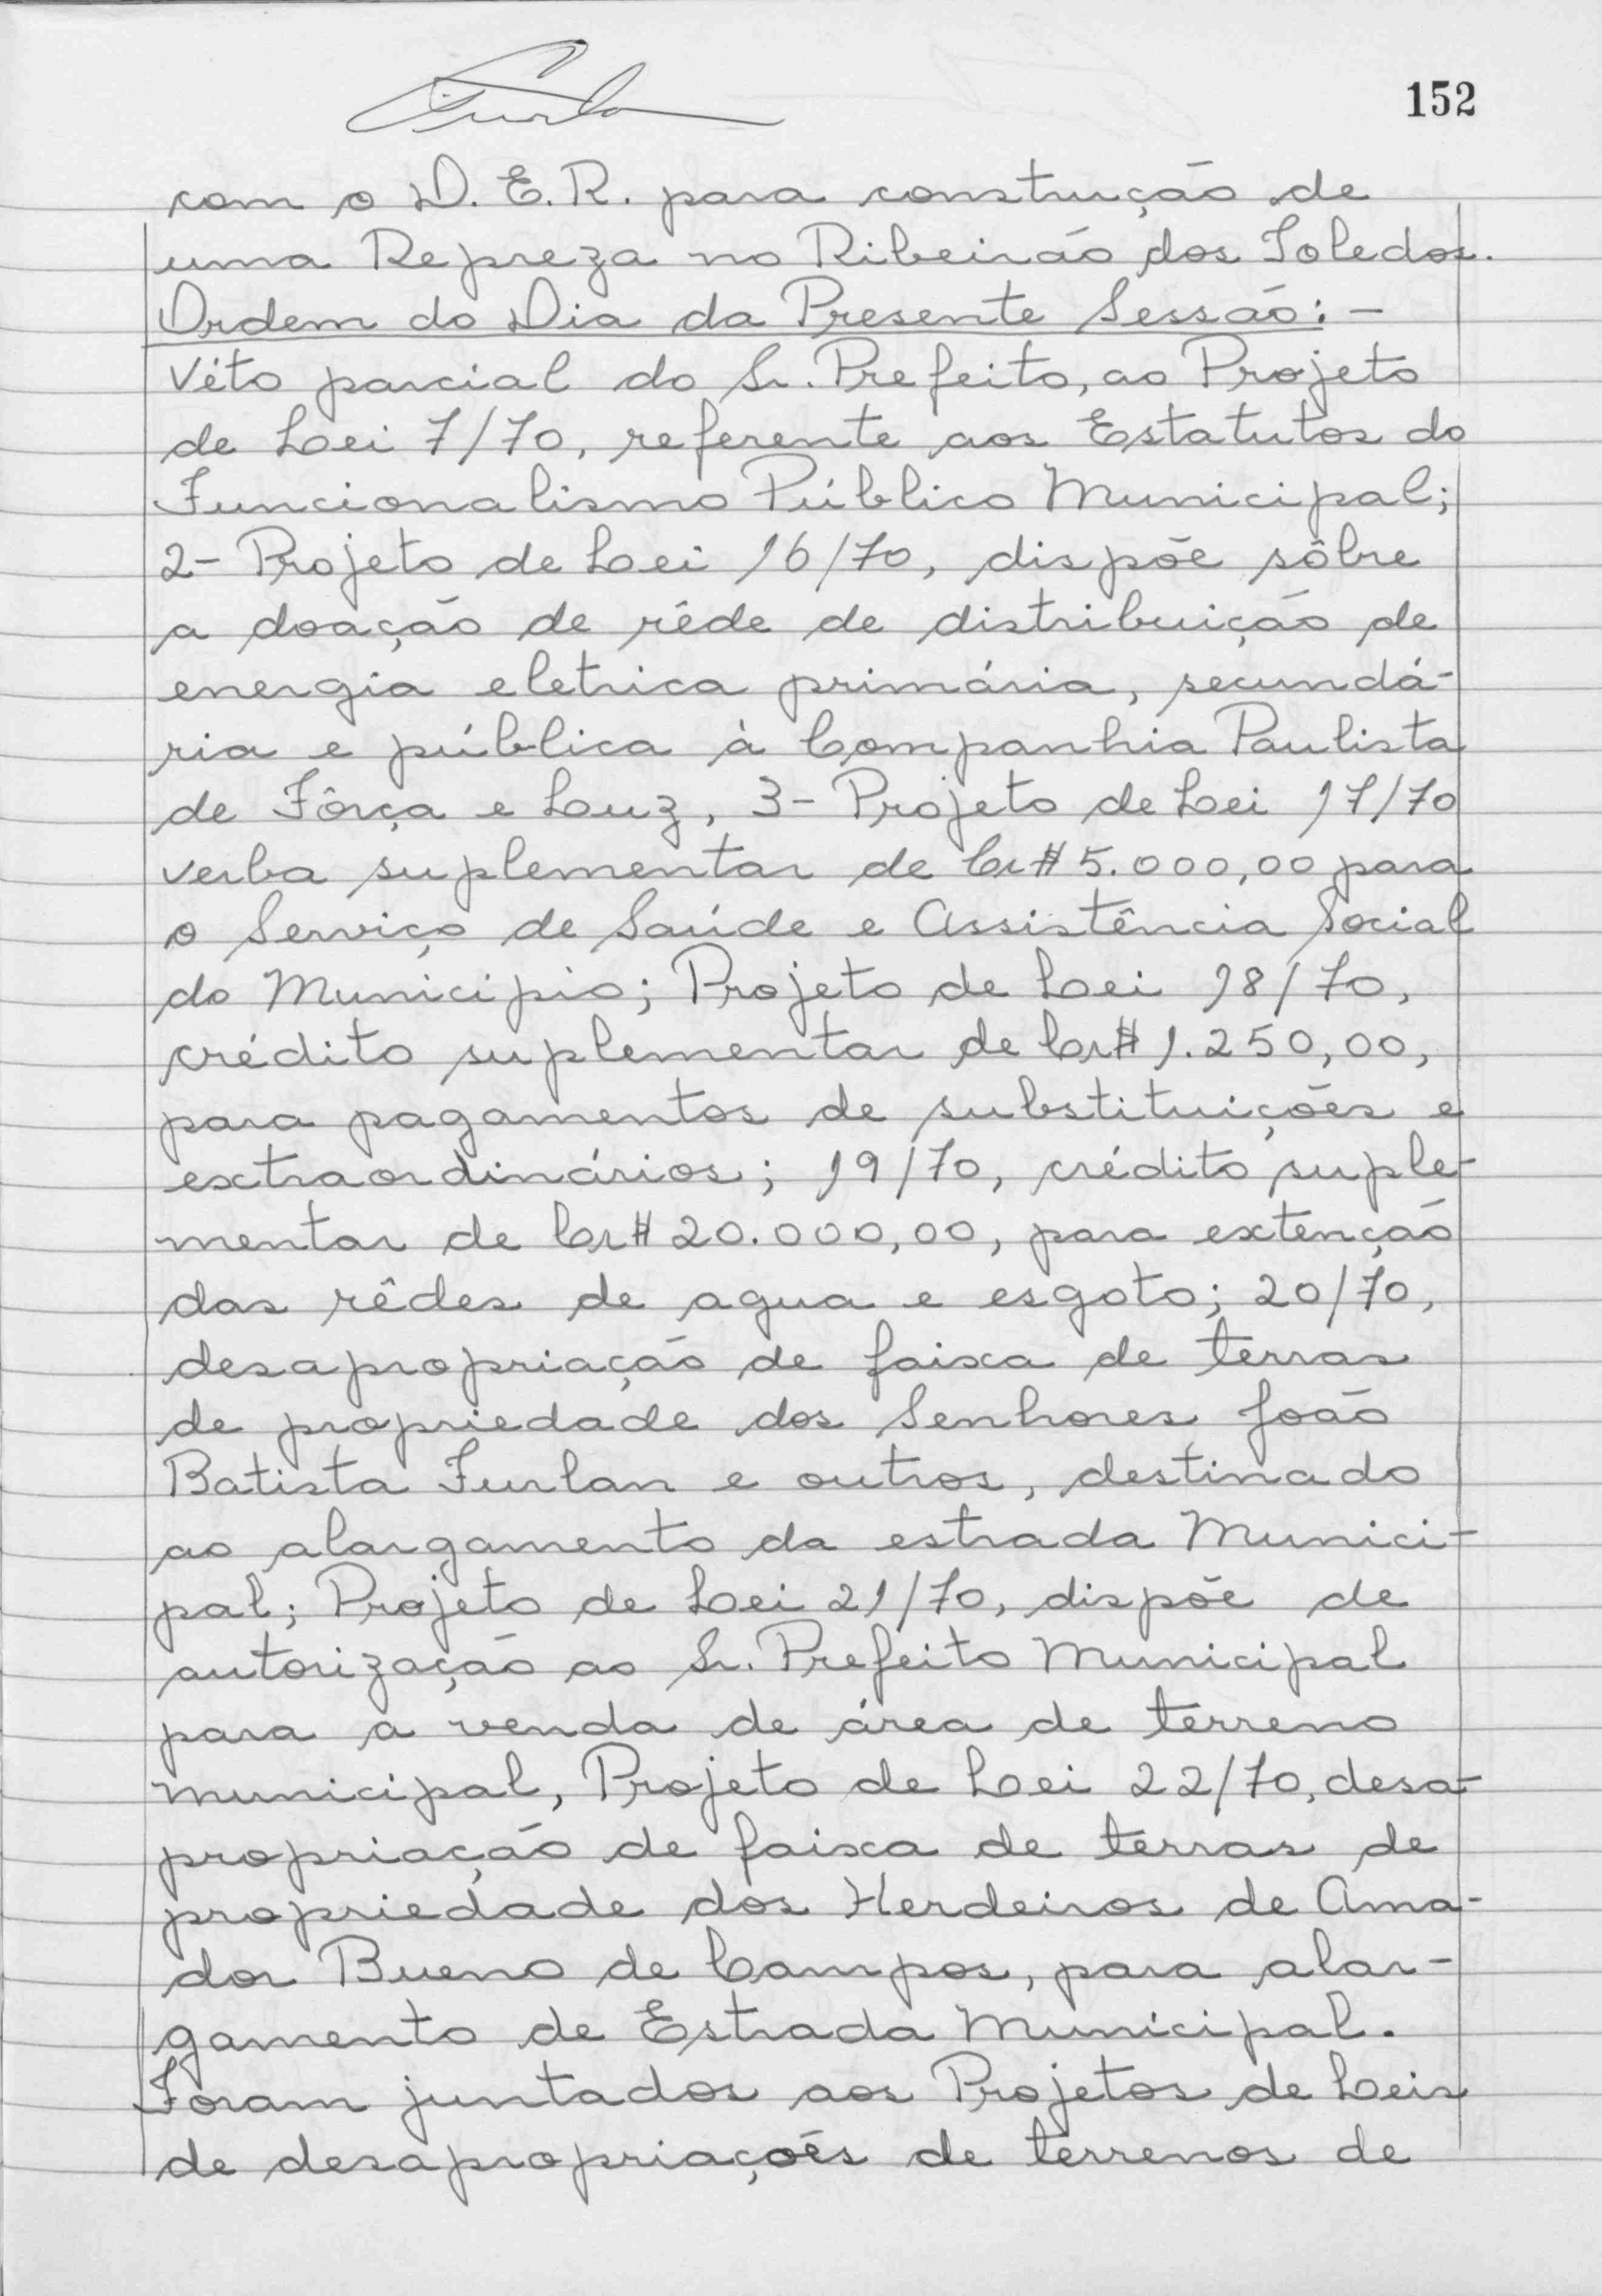 152
com o D. E. R. para construção de
uma Repreza no Ribeirão dos Toledos.
Ordem do Dia da Presente Sessão: -
Véto parcial do Sr. Prefeito, ao Projeto
de Lei 7/70, referente aos Estatutos do
Funcionalismo Público Municipal;
2- Projeto de Lei 16/70, dispõe sôbre
a doação de rêde de distribuição de
energia eletrica primária, secundá-
ria e pública à Companhia Paulista
de Fôrça e Luz, 3- Projeto de Lei 17/70
verba suplementar de Cr$ 5.000,00 para
o Serviço de Saúde e Assistência Social
do Municipio; Projeto de Lei 18/70,
crédito suplementar de Cr$ 1.250,00,
para pagamentos de substituições e
extraordinários; 19/70, crédito suple-
mentar de Cr$ 20.000,00, para extenção
das rêdes de agua e esgoto; 20/70,
desapropriação de faixa de terras
de propriedade dos Senhores João
Batista Furlan e outros, destinado
ao alargamento da estrada Munici-
pal; Projeto de Lei 21/70, dispõe de
autorização ao Sr. Prefeito Municipal
para a venda de área de terreno
municipal, Projeto de Lei 22/70, desa-
propriação de faixa de terras de
propriedade dos Herdeiros de Ama-
dor Bueno de Campos, para alar-
gamento de Estrada Municipal.
Foram juntados aos Projetos de Leis
de desapropriações de terrenos de